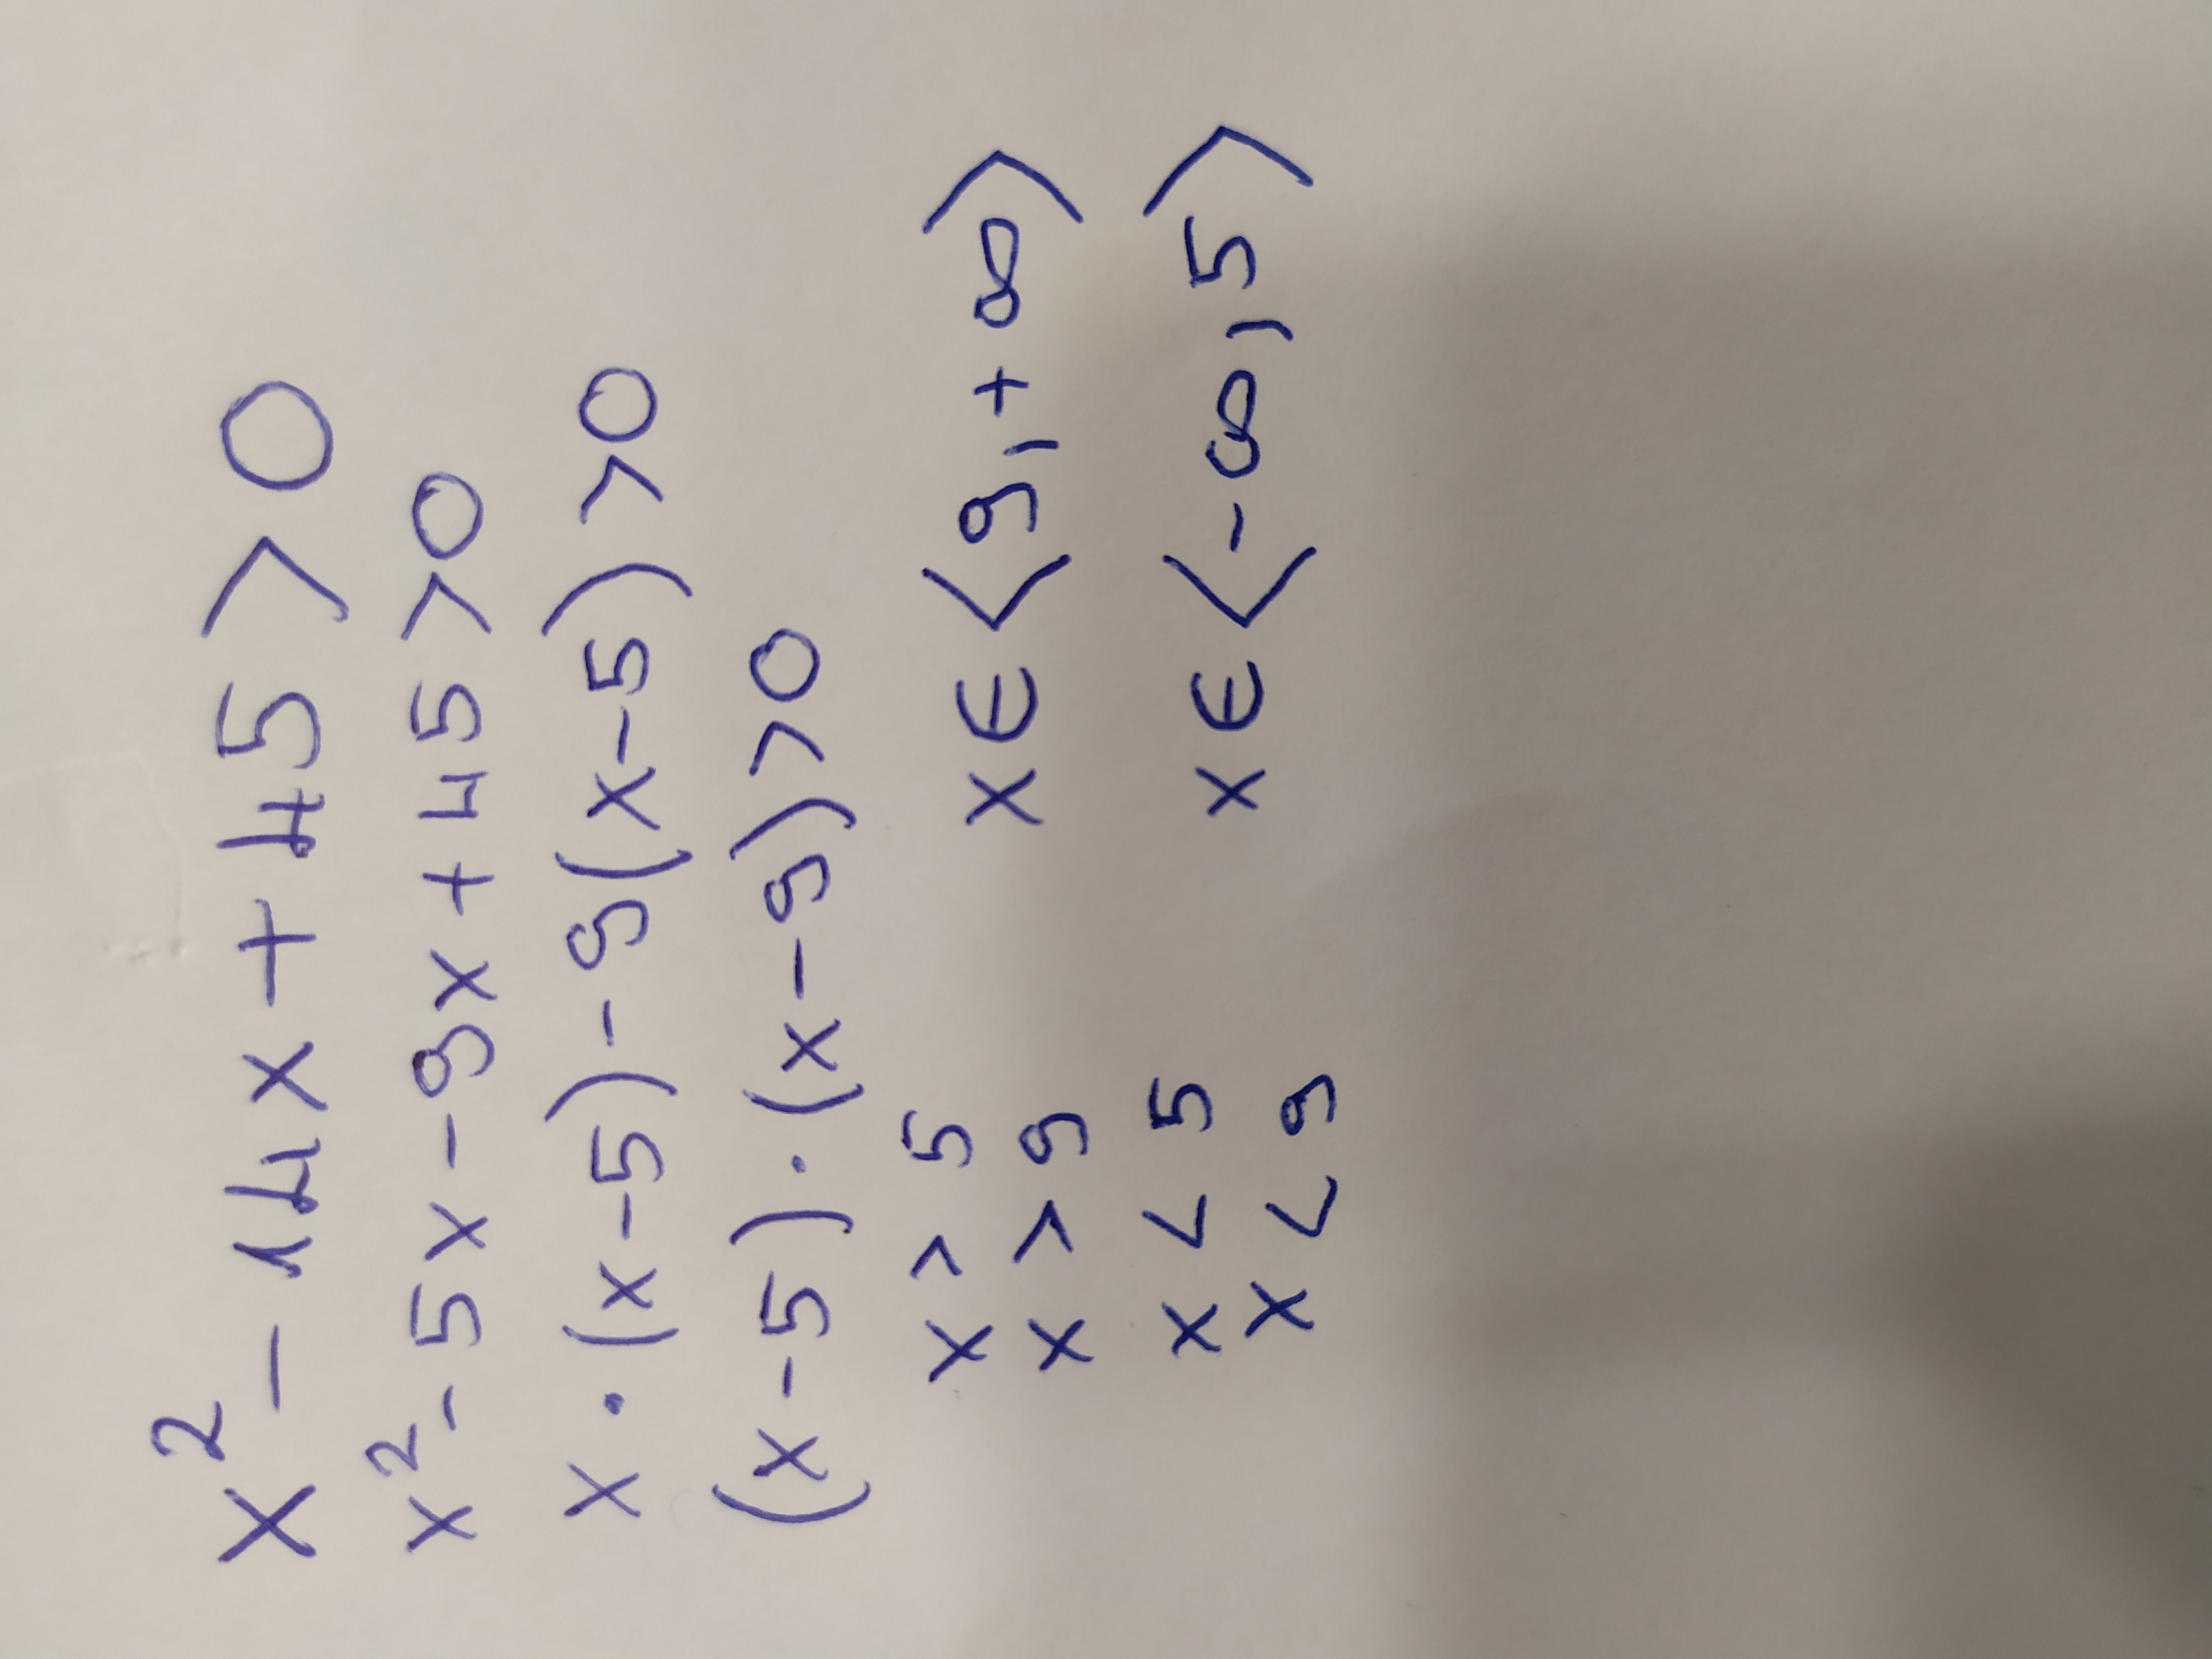 x² - 14x + 45 > 0
x² - 5x - 9x + 45 > 0
x · (x - 5) - 9(x - 5) > 0
(x - 5) · (x - 9) > 0
x > 5
x > 9 x ∈ <9, +∞>
x < 5
x < 9 x ∈ <-∞, 5>